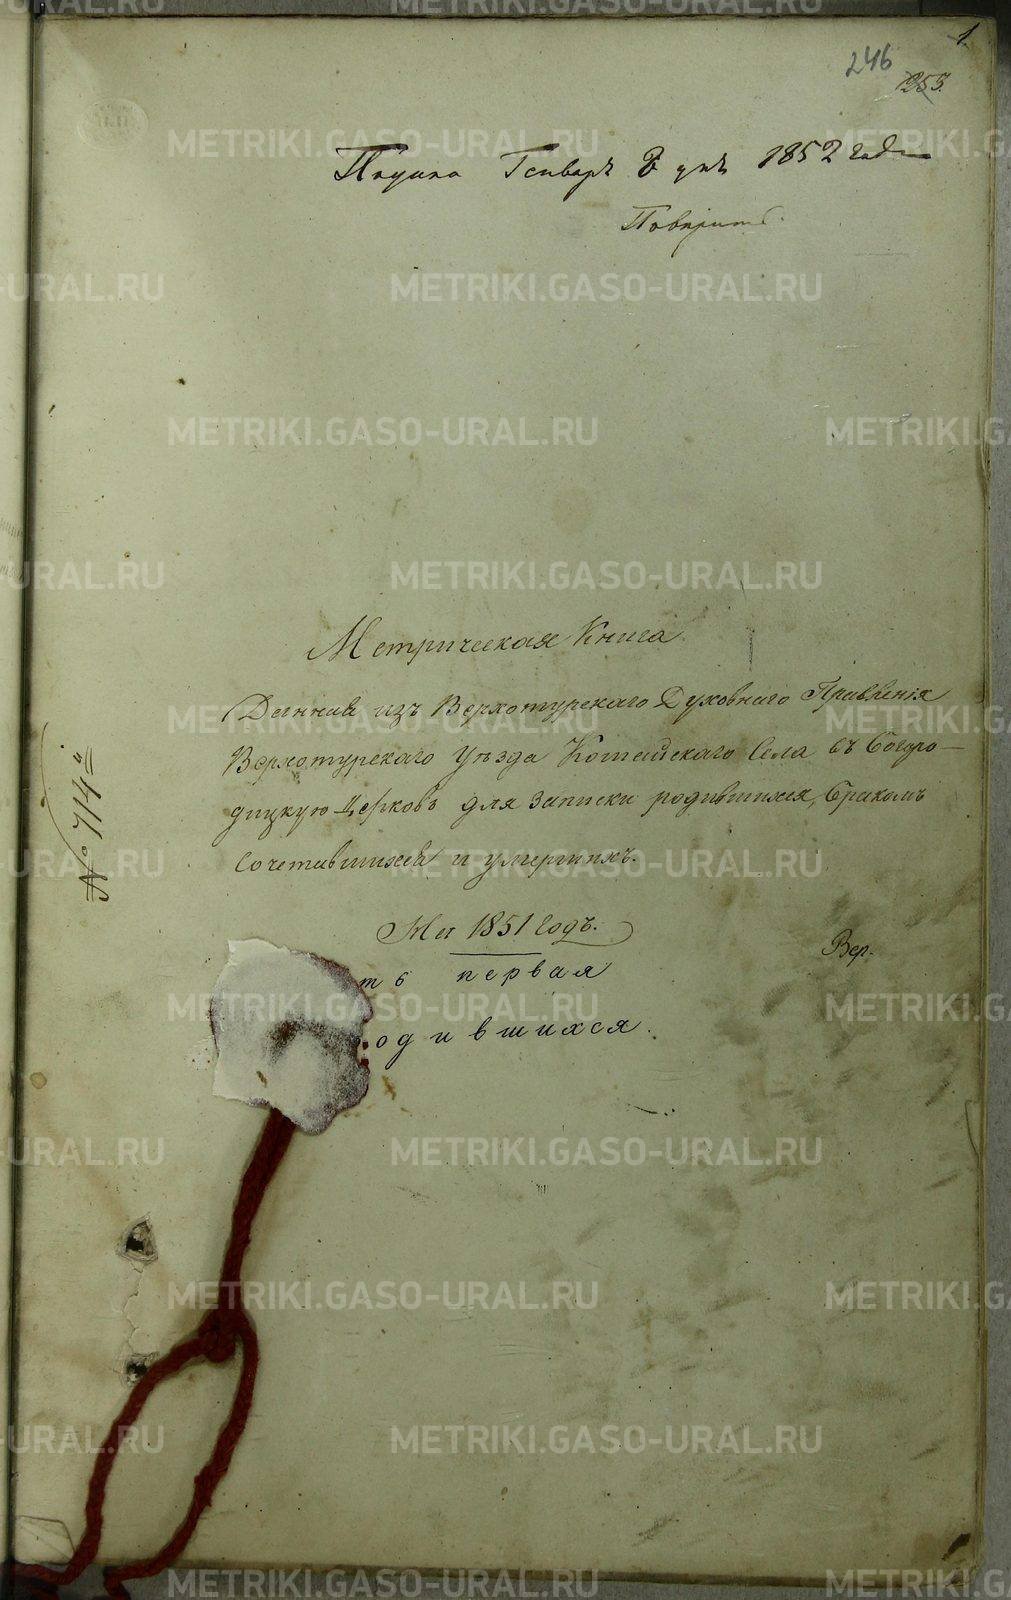 1.
246
253.
Генваря 8 дня 1852 года
Метрическая Книга
Данная изъ Верхотурскаго Духовнаго Правленія
Верхотурскаго Уѣзда Села въ Богоро-
дицкую Церковь для записки родившихся, бракомъ
сочетавшихся и умершихъ.
На 1851 годъ.
ть первая
одившихся.
Вер.
№ 114й
METRIKI.GASO-URAL.RU